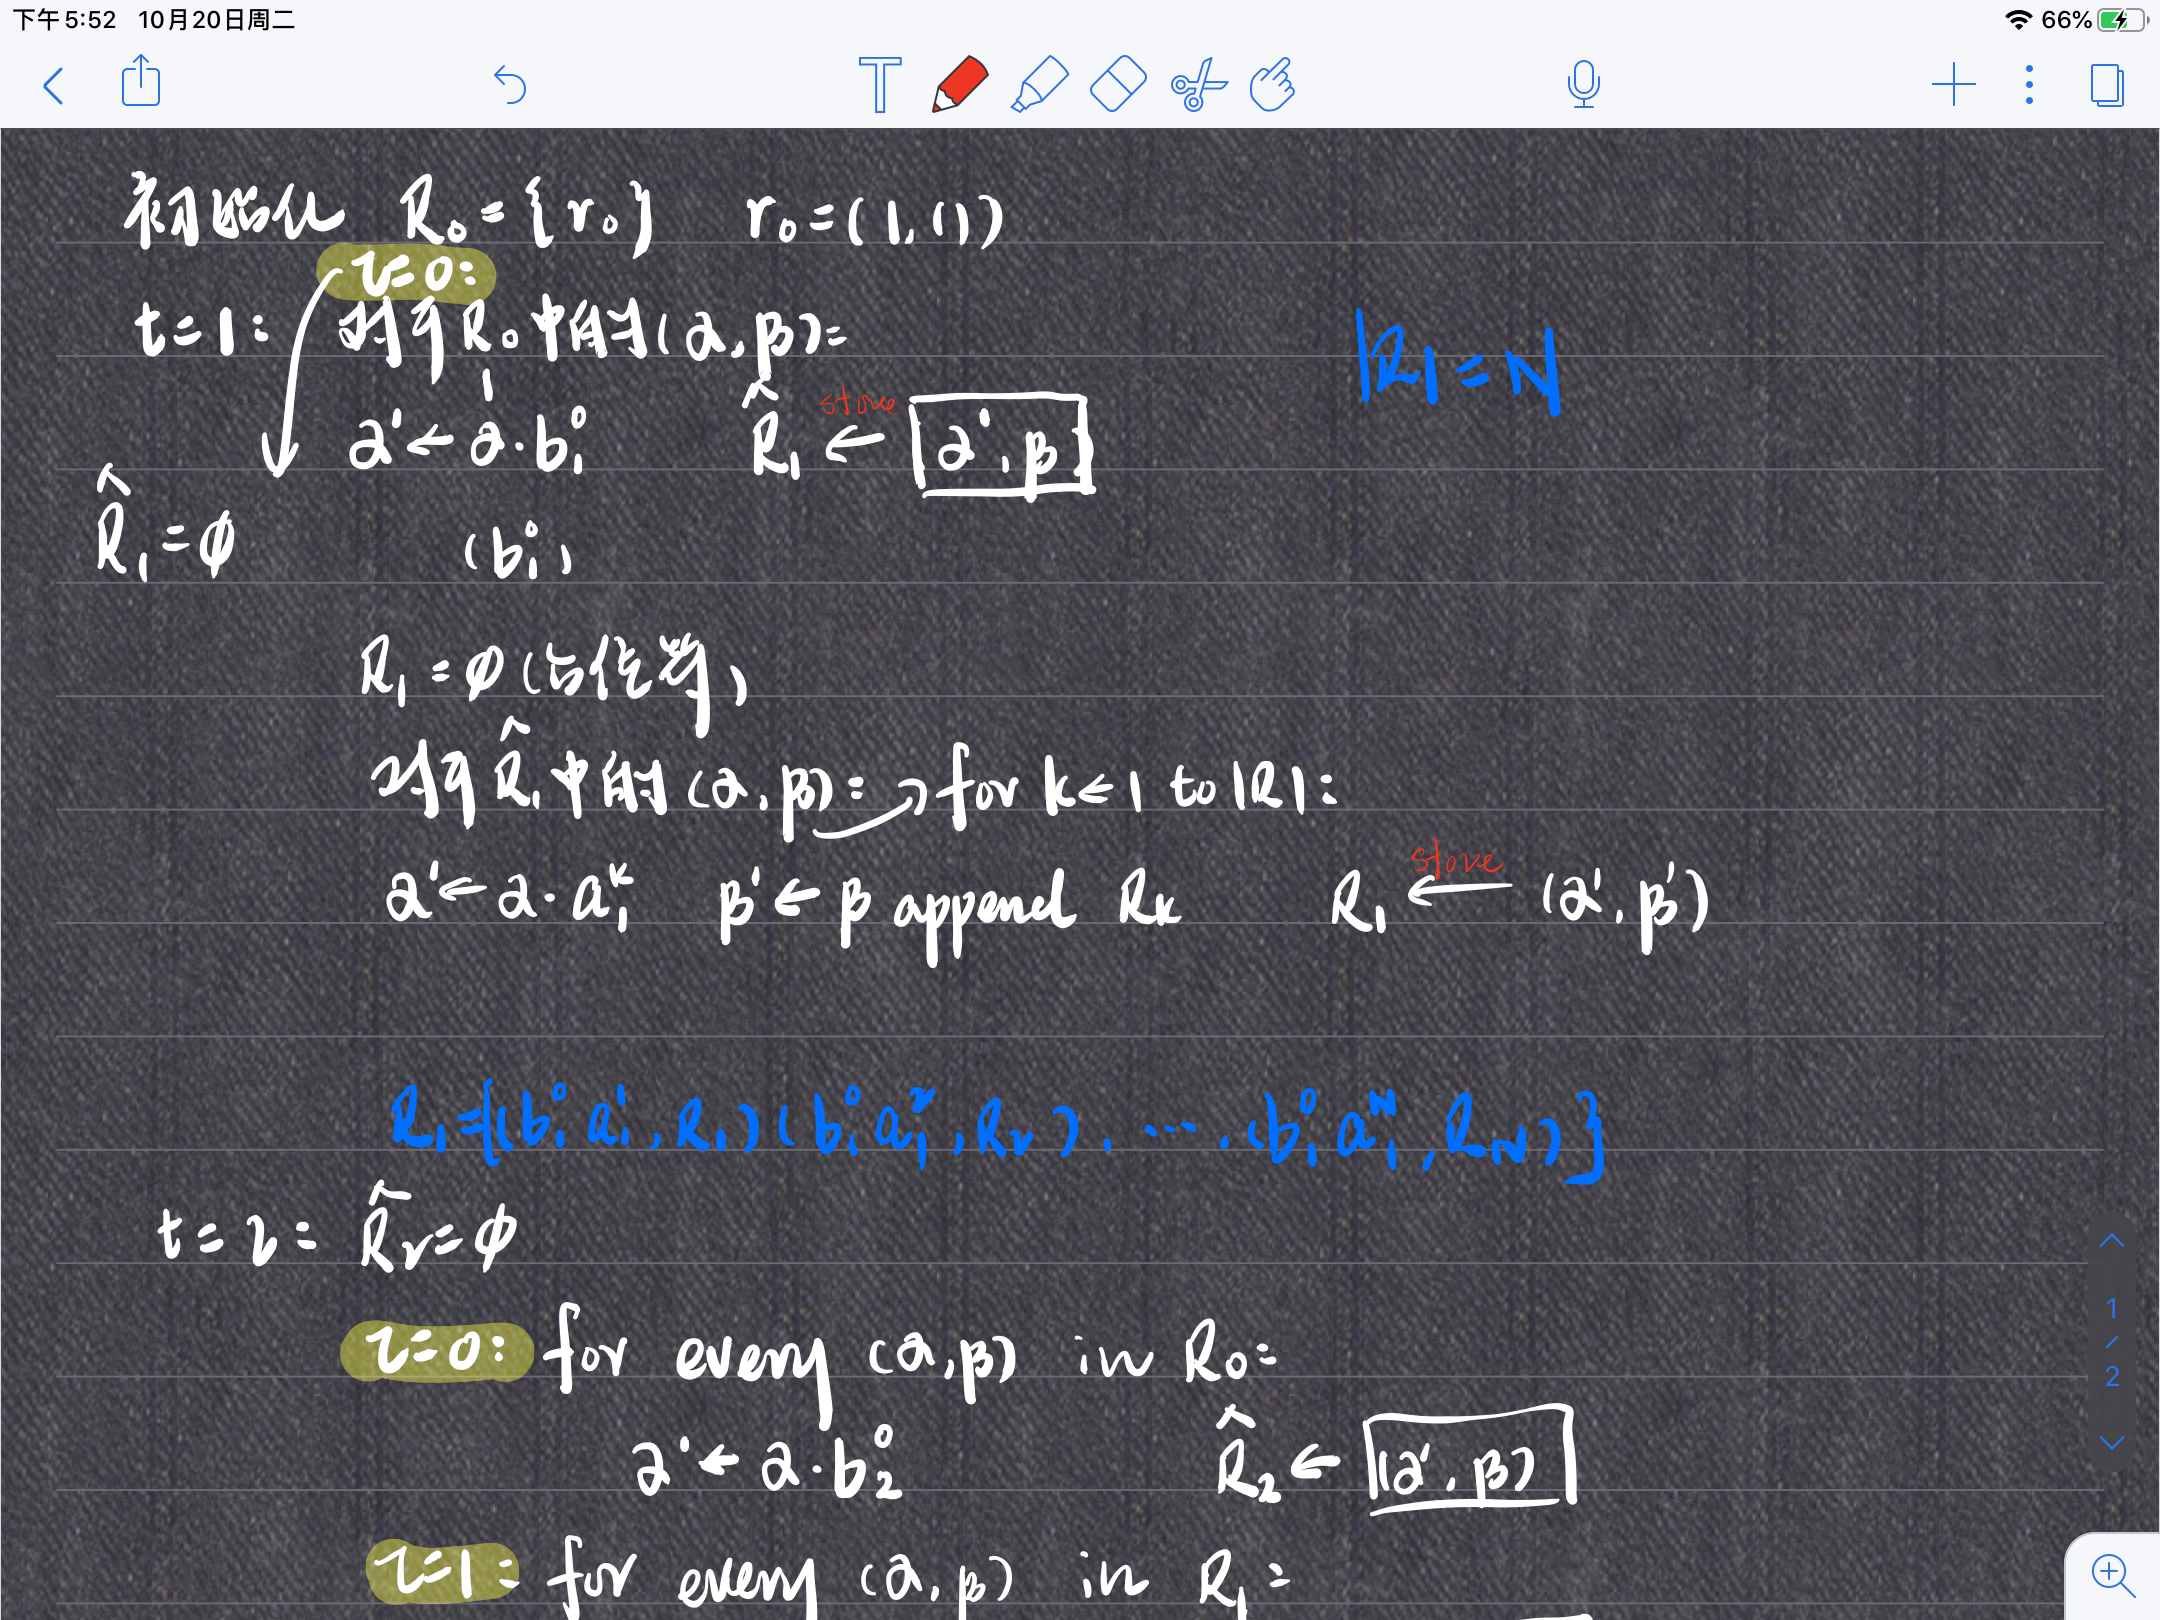 下午5:52 10月20日周二 66%
T
初始化 R₀={r₀} r₀=(1,())
τ=0:
t=1: 对于R₀中的每(α,β):
|R|=N
α'←α·b₁⁰ R̂₁ ←store α',β
R̂₁=∅ (b₁⁰)
R₁=∅(占位符)
对于R̂₁中的每(α,β): for k←1 to |R|:
α'←α·a₁ᵏ β'←β append Rₖ R₁ ←store (α',β')
R₁={(b₁⁰a₁¹,R₁)(b₁⁰a₁²,R₂),....(b₁⁰a₁ᴺ,R_N)}
t=2: R̂₂=∅
τ=0: for every (α,β) in R₀:
α'←α·b₂⁰ R̂₂←(α',β)
τ=1: for every (α,β) in R₁:
1
/
2